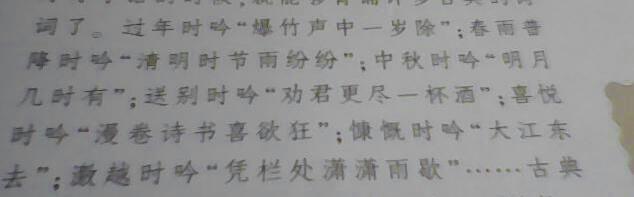 词了。过年时吟“爆竹声中一岁除”;春雨普
降时吟“清明时节雨纷纷”;中秋时吟“明月
几时有”;送别时吟“劝君更尽一杯酒”;喜悦
时吟“漫卷诗书喜欲狂”;慷慨时吟“大江东
去”;激越时吟“凭栏处潇潇雨歇”……古典